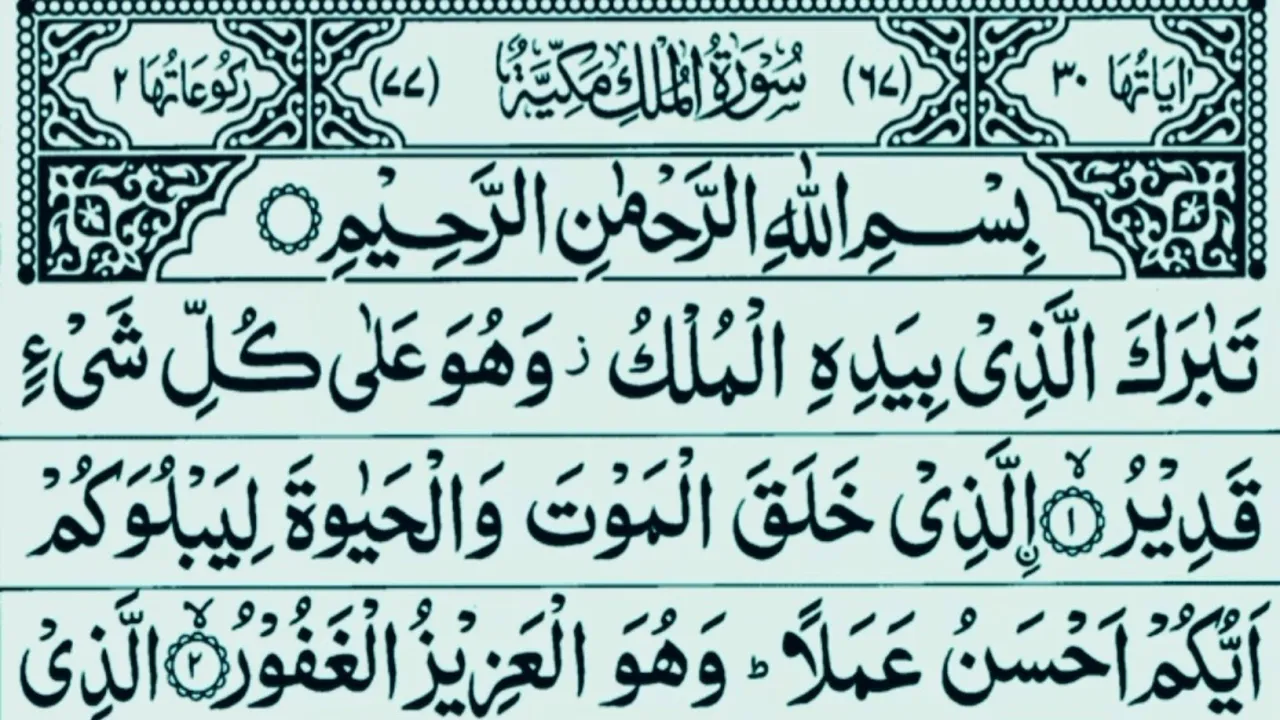 اٰيَاتُهَا ٣٠ (٦٧) سُوْرَةُ الْمُلْكِ مَكِّيَّةٌ (٧٧) رَكُوْعَاتُهَا ٢
بِسْمِ اللّٰهِ الرَّحْمٰنِ الرَّحِيْمِ
تَبٰرَكَ الَّذِىْ بِيَدِهِ الْمُلْكُ ز وَهُوَ عَلٰى كُلِّ شَىْءٍ
قَدِيْرُ ۙ ١ اِ۟لَّذِىْ خَلَقَ الْمَوْتَ وَالْحَيٰوةَ لِيَبْلُوَكُمْ
اَيُّكُمْ اَحْسَنُ عَمَلًا ؕ وَهُوَ الْعَزِيْزُ الْغَفُوْرُ ۙ ٢ الَّذِىْ